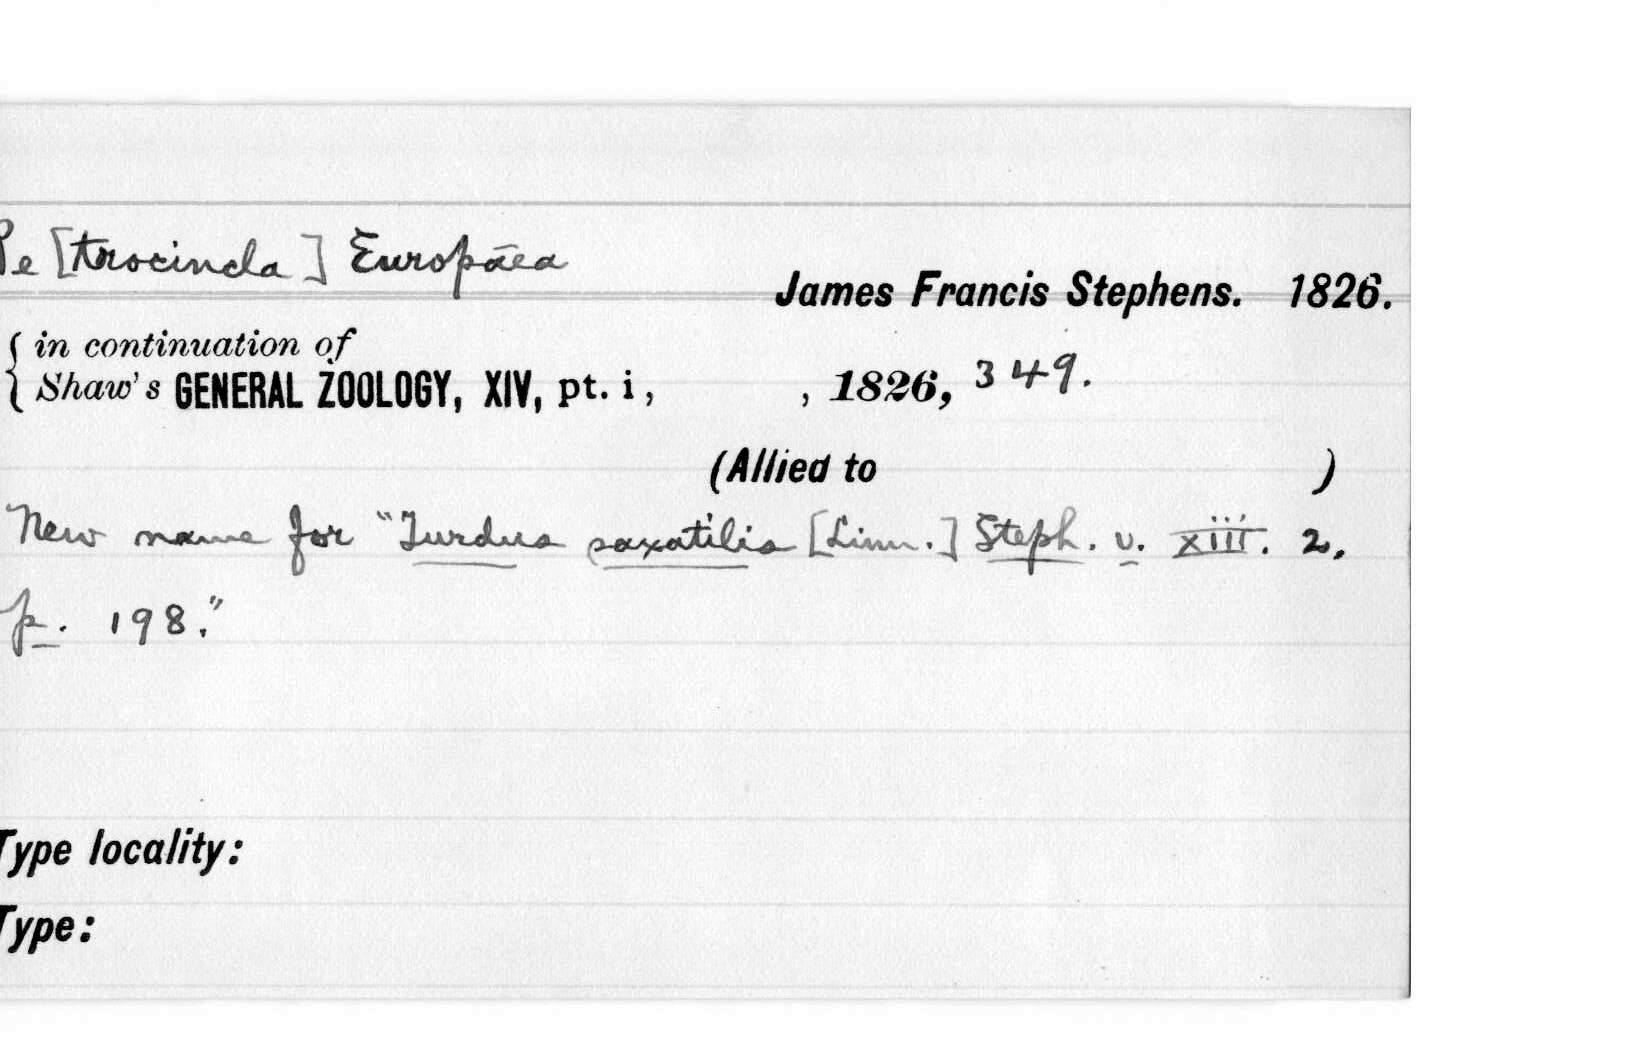 Pe [trocincla] Europäea
James Francis Stephens. 1826.
in continuation of
Shaw's GENERAL ZOOLOGY, XIV, pt. i, , 1826, 349.
(Allied to )
New name for "Turdus saxatilis [Linn.] Steph. v. xiii. 2,
p. 198."
Type locality:
Type: